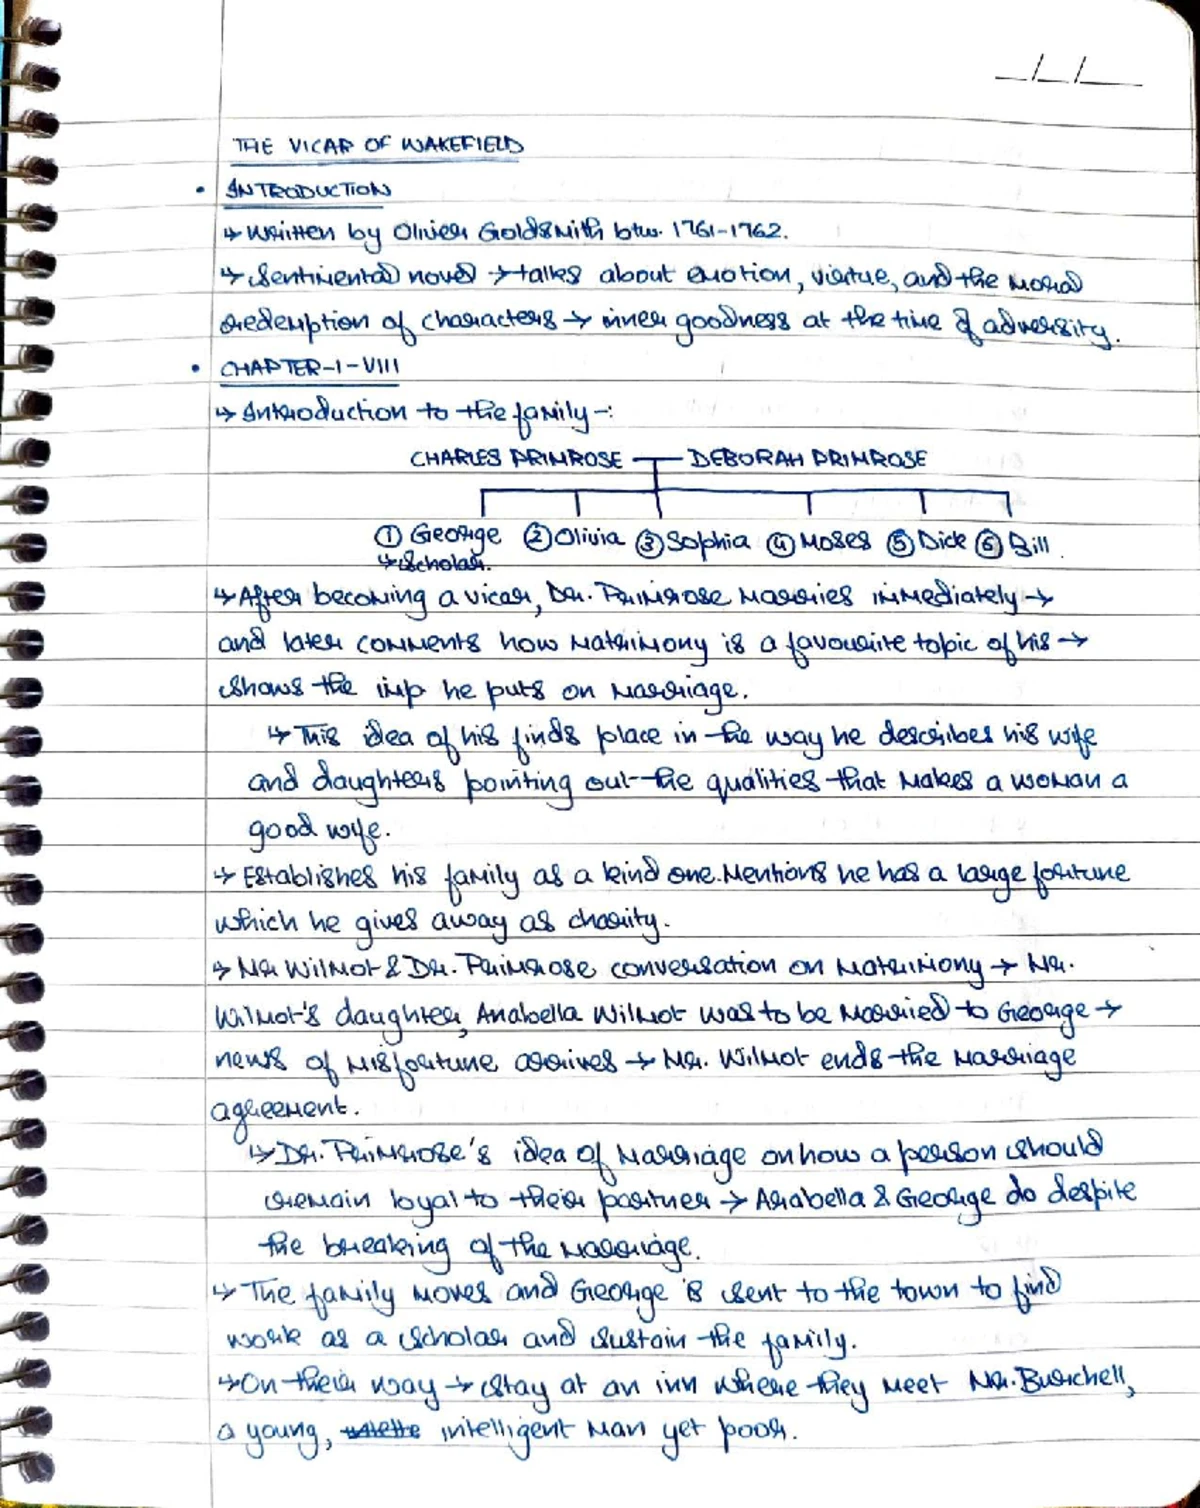 _/_/_
THE VICAR OF WAKEFIELD
• INTRODUCTION
↳ Written by Oliver Goldsmith btw. 1761-1762.
↳ Sentimental novel → talks about emotion, virtue, and the moral
redemption of characters → inner goodness at the time of adversity.
• CHAPTER-I-VIII
↳ Introduction to the family-:
CHARLES PRIMROSE DEBORAH PRIMROSE
① George ② Olivia ③ Sophia ④ Moses ⑤ Dick ⑥ Bill
↳ Scholar.
↳ After becoming a vicar, Dr. Primrose marries immediately →
and later comments how matrimony is a favourite topic of his →
shows the imp he puts on marriage.
↳ This idea of his finds place in the way he describes his wife
and daughters pointing out the qualities that makes a woman a
good wife.
↳ Establishes his family as a kind one. Mentions he has a large fortune
which he gives away as charity.
↳ Mr Wilmot & Dr. Primrose conversation on matrimony → Mr.
Wilmot's daughter, Anabella Wilmot was to be married to George →
news of misfortune arrives → Mr. Wilmot ends the marriage
agreement.
↳ Dr. Primrose's idea of marriage on how a person should
remain loyal to their partner → Arabella & George do despite
the breaking of the marriage.
↳ The family moves and George is sent to the town to find
work as a scholar and sustain the family.
↳ On their way → stay at an inn where they meet Mr. Burchell,
a young, intelligent man yet poor.